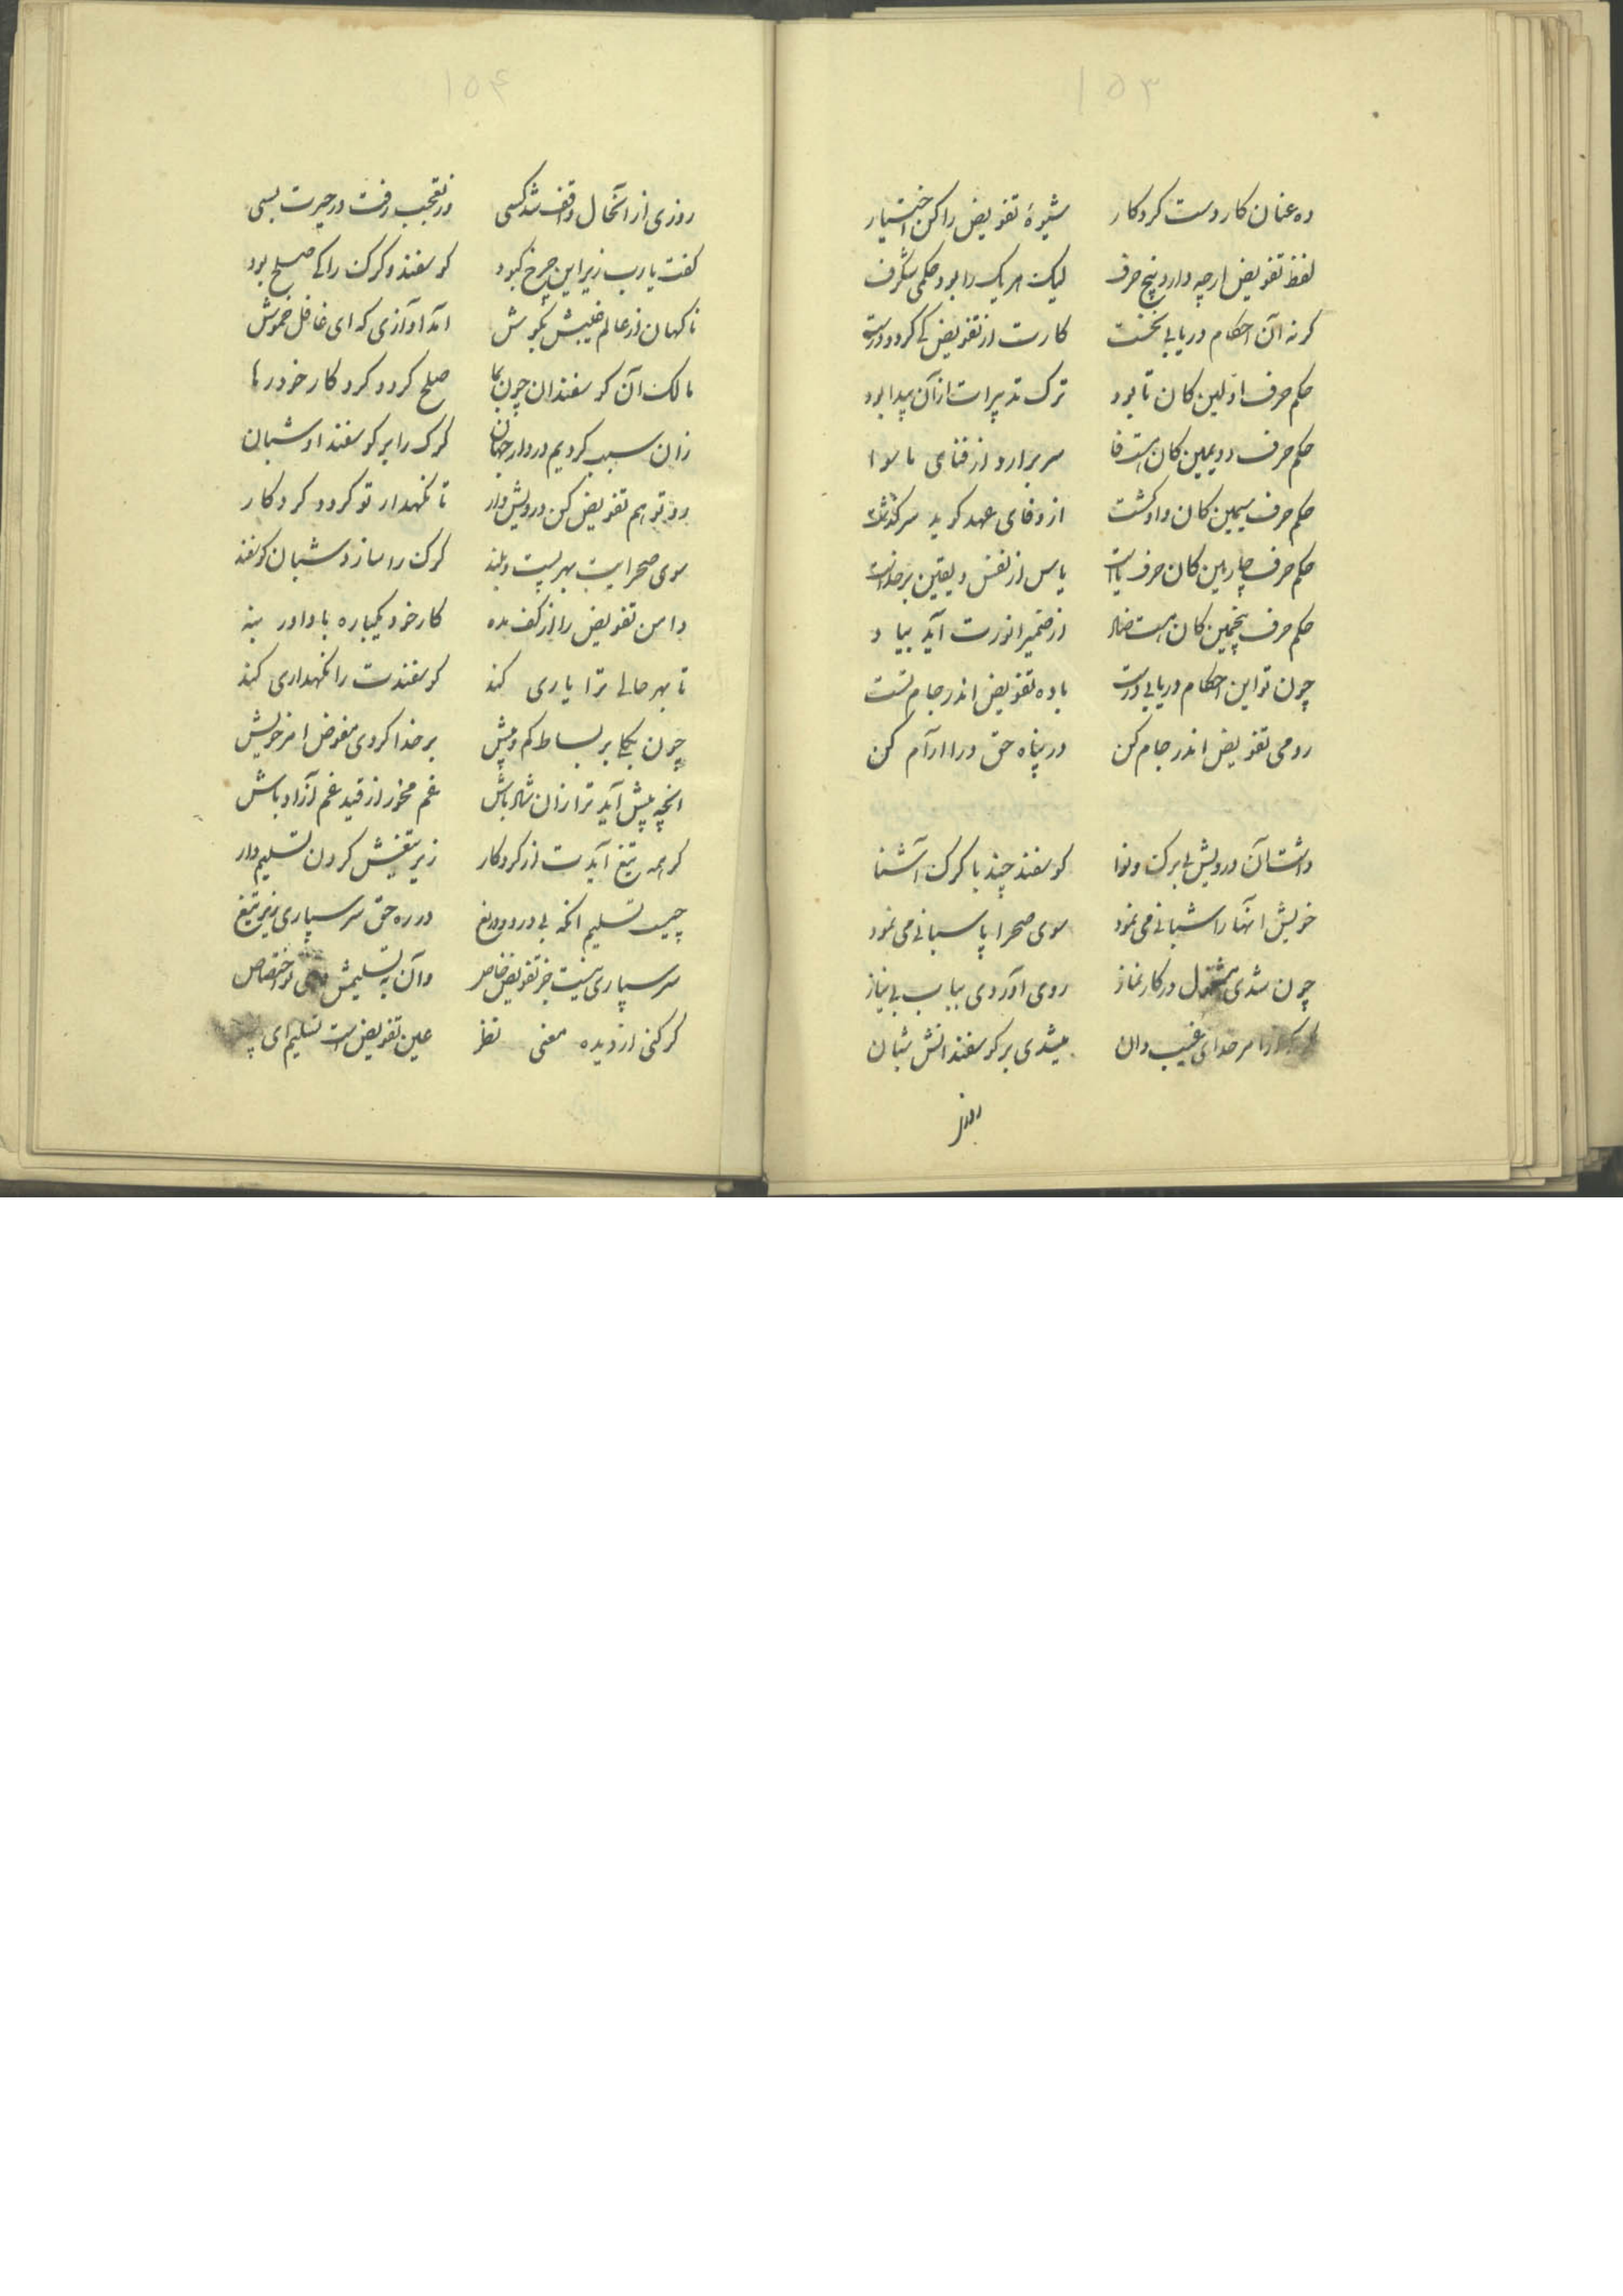 ۱۵۳
ده عنان کار دست کردکار شیوهٔ تفویض را کن اختیار
لفظ تفویض ارچه دارد پنج حرف لیک هر یک را بود حکمی شگرف
کر نه آن احکام دریابی نخست کارت از تفویض کی کردد درست
حکم حرف اولین کان تا بود ترک تدبیرات از آن پیدا بود
حکم حرف دویمین کان هست فا سر برارد از فنای ما سوا
حکم حرف سیمین کان واو کشت از وفای عهد کوید سرکذشت
حکم حرف چارمین کان حرف یاست یاس از نفس و یقین بر خداست
حکم حرف پنجمین کان هست ضاد از ضمیر انورت آید بیاد
چون تو این احکام دریابی درست باده تفویض اندر جام تست
رو می تفویض اندر جام کن در پناه حق درا آرام کن
داشت آن درویش بی برک و نوا کوسفند چند با کرک آشنا
خویش آنها را شبانی می نمود سوی صحرا پاسبانی می نمود
چون شدی مشغول در کار نماز روی آوردی بباب بی نیاز
را امر خدای غیب دان میشدی بر کوسفندانش شبان
روز
۱۵۴
روزی از آنحال واقف شد کسی در تعجب رفت در حیرت بسی
کفت یارب زیر این چرخ کبود کوسفند و کرک را کی صلح بود
ناکهان از عالم غیبش بکوش آمد آوازی که ای غافل خموش
مالک آن کوسفندان چون بما صلح کرد و کرد کار خود رها
زان سبب کردیم در دار جهان کرک را بر کوسفند او شبان
رو تو هم تفویض کن درویش وار تا نکهدار تو کردد کردکار
سوی صحرایت بهر پست و بلند کرک را سازد شبان کوسفند
دامن تفویض را از کف مده کار خود یکباره با داور بنه
تا بهر حالی ترا یاری کند کوسفندت را نکهداری کند
چون یکجا بر بساط کم و بیش بر خدا کردی مفوض امر خویش
انچه پیش آید ترا زان شاد باش غم مخور از قید غم آزاد باش
کر همه تیغ آیدت از کردکار زیر تیغش کردن تسلیم دار
چیست تسلیم انکه بی درد و دریغ در ره حق سر سپاری زیر تیغ
سر سپاری نیست جز تفویض خاص وآن به تسلیمش اختصاص
کر کنی از دیده معنی نظر عین تفویض است تسلیم ای